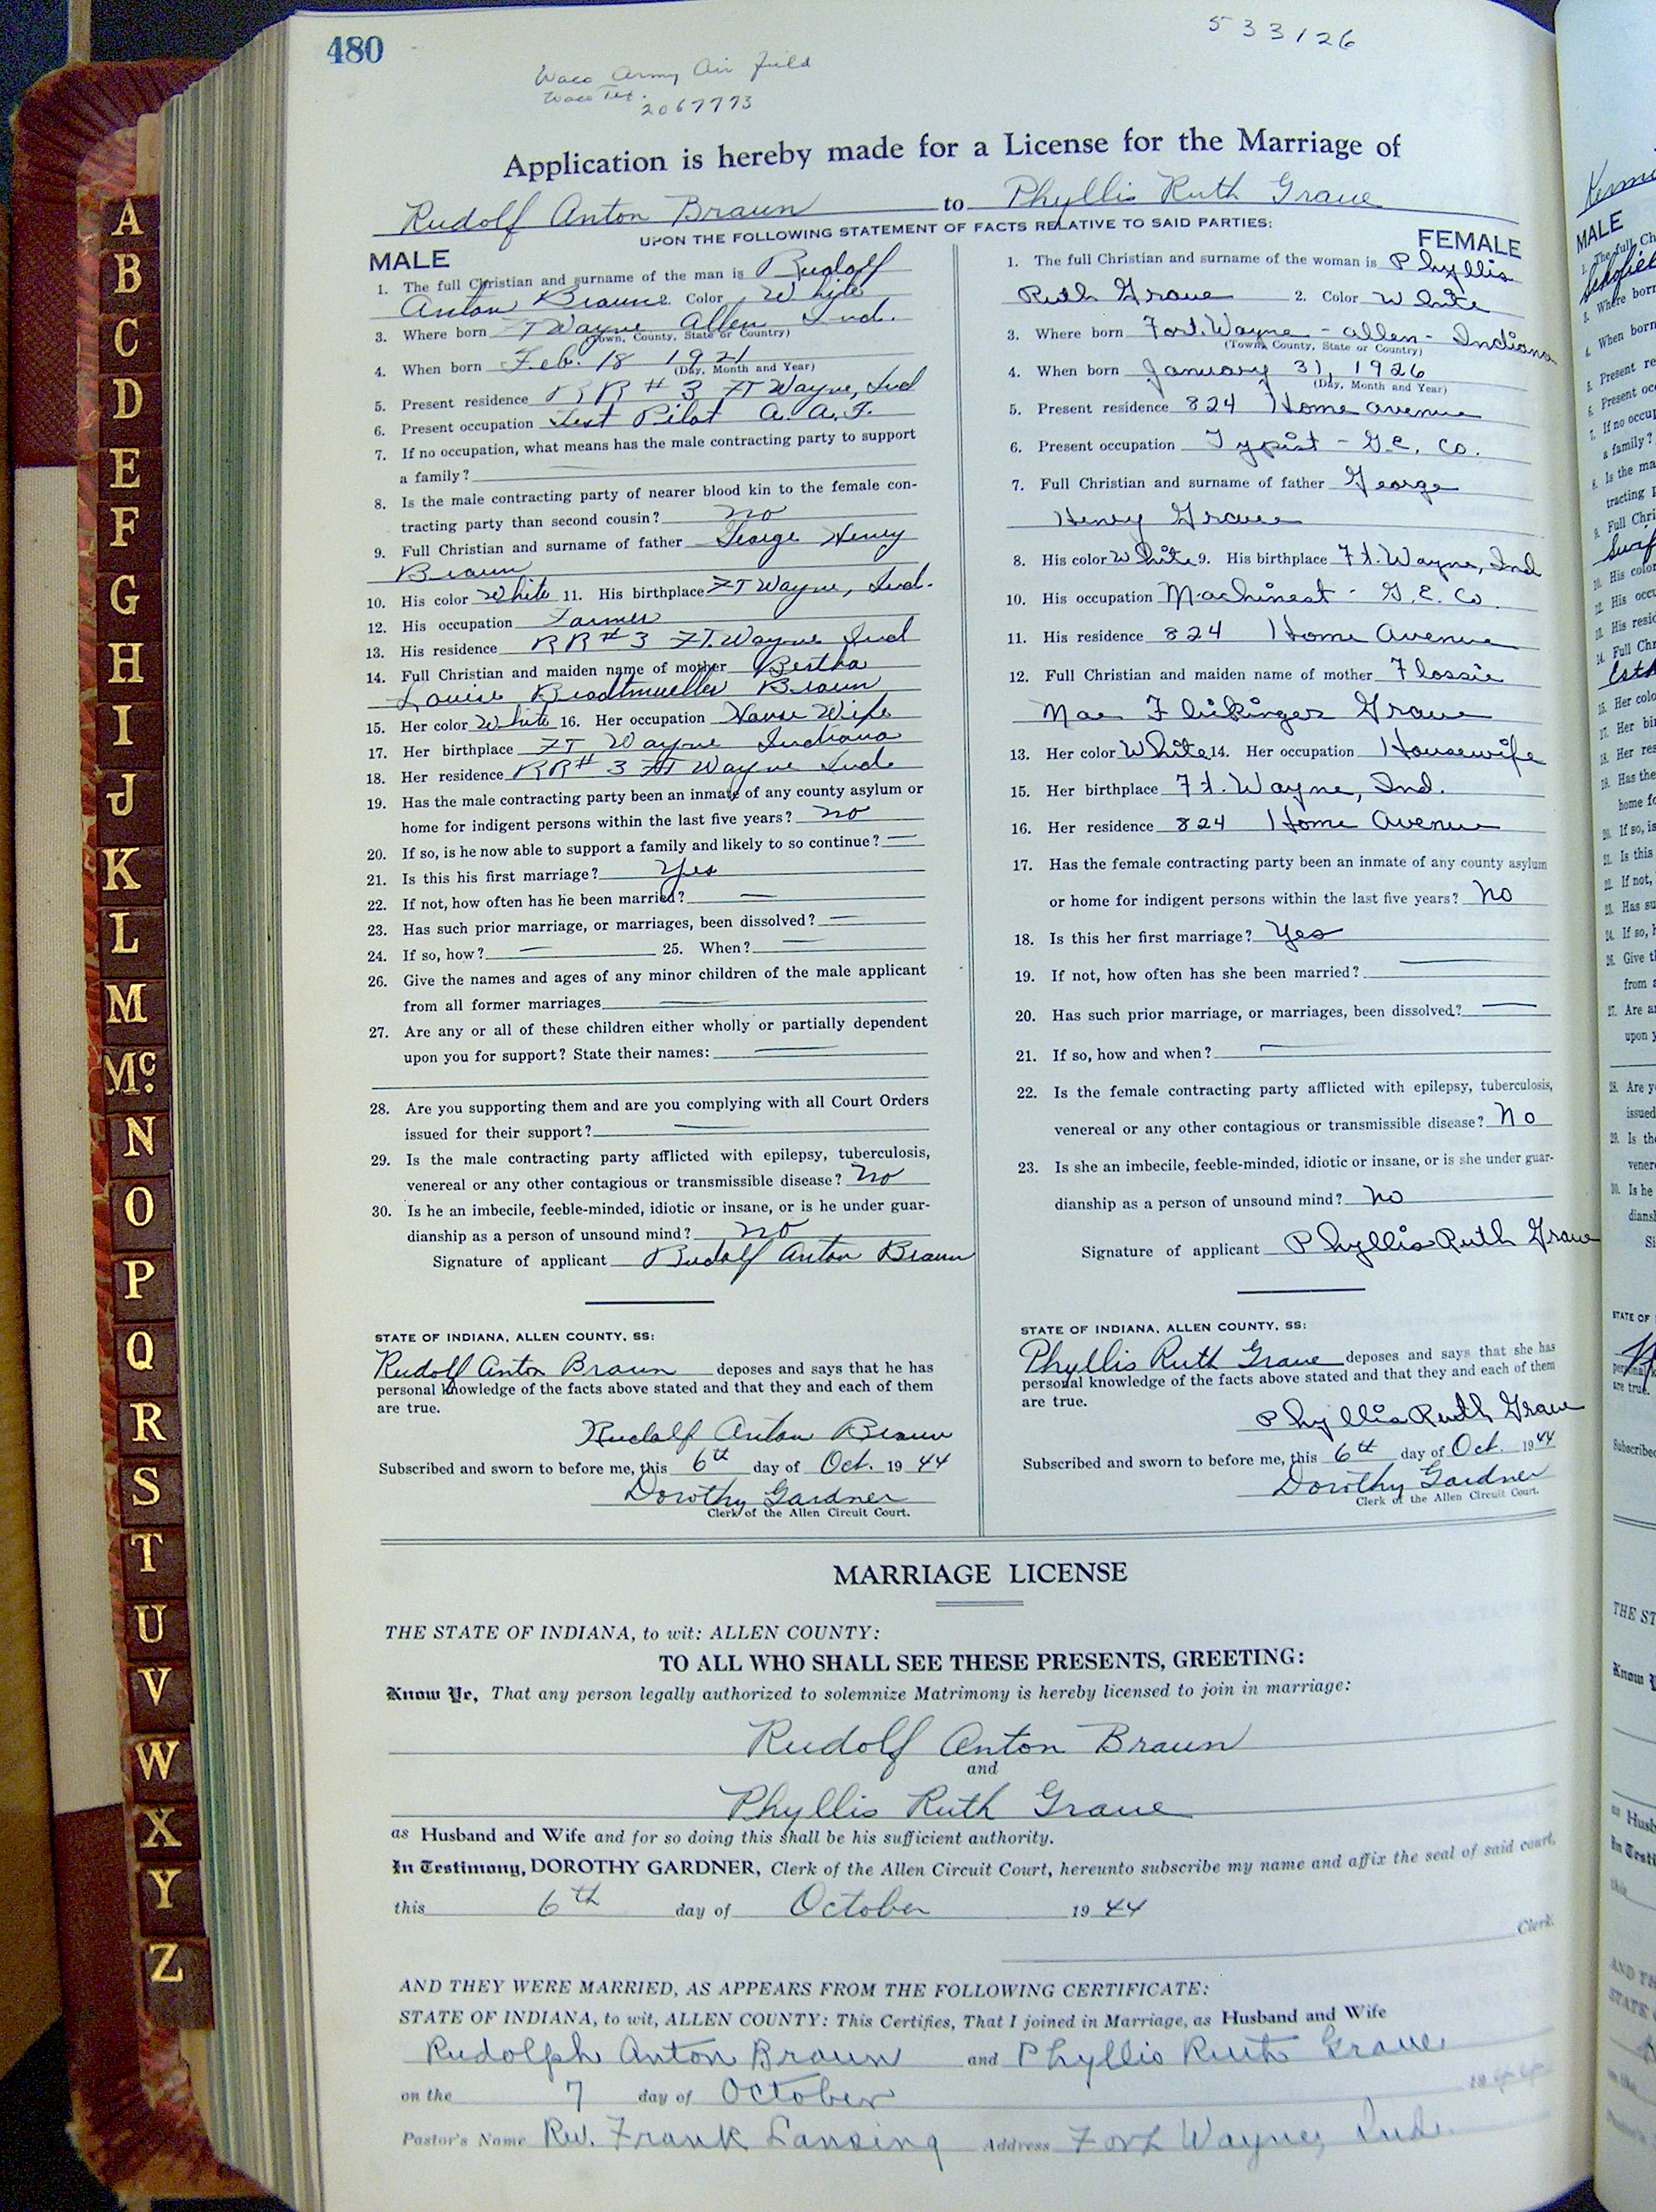 480
533126
Waco Army Air Field
Waco Tex.
2067773
Application is hereby made for a License for the Marriage of
Rudolf Anton Braun to Phyllis Ruth Graue
UPON THE FOLLOWING STATEMENT OF FACTS RELATIVE TO SAID PARTIES:
MALE
1. The full Christian and surname of the man is Rudolf
Anton Braun 2. Color White
3. Where born FT Wayne Allen Ind.
(Town, County, State or Country)
4. When born Feb. 18 1921
(Day, Month and Year)
5. Present residence RR # 3 FT Wayne, Ind
6. Present occupation Test Pilot A.A.F.
7. If no occupation, what means has the male contracting party to support
a family?
8. Is the male contracting party of nearer blood kin to the female con-
tracting party than second cousin? no
9. Full Christian and surname of father George Henry
Braun
10. His color White 11. His birthplace FT Wayne, Ind.
12. His occupation Farmer
13. His residence RR # 3 FT. Wayne Ind
14. Full Christian and maiden name of mother Bertha
Louise Bradtmueller Braun
15. Her color White 16. Her occupation House Wife
17. Her birthplace FT Wayne Indiana
18. Her residence RR # 3 FT Wayne Ind.
19. Has the male contracting party been an inmate of any county asylum or
home for indigent persons within the last five years? no
20. If so, is he now able to support a family and likely to so continue? —
21. Is this his first marriage? Yes
22. If not, how often has he been married? —
23. Has such prior marriage, or marriages, been dissolved? —
24. If so, how? — 25. When? —
26. Give the names and ages of any minor children of the male applicant
from all former marriages —
27. Are any or all of these children either wholly or partially dependent
upon you for support? State their names: —
28. Are you supporting them and are you complying with all Court Orders
issued for their support? —
29. Is the male contracting party afflicted with epilepsy, tuberculosis,
venereal or any other contagious or transmissible disease? no
30. Is he an imbecile, feeble-minded, idiotic or insane, or is he under guar-
dianship as a person of unsound mind? no
Signature of applicant Rudolf Anton Braun
STATE OF INDIANA, ALLEN COUNTY, SS:
Rudolf Anton Braun deposes and says that he has
personal knowledge of the facts above stated and that they and each of them
are true.
Rudolf Anton Braun
Subscribed and sworn to before me, this 6th day of Oct. 19 44
Dorothy Gardner
Clerk of the Allen Circuit Court.
FEMALE
1. The full Christian and surname of the woman is Phyllis
Ruth Graue 2. Color White
3. Where born Fort Wayne - Allen - Indiana
(Town, County, State or Country)
4. When born January 31, 1926
(Day, Month and Year)
5. Present residence 824 Home Avenue
6. Present occupation Typist - G.E. Co.
7. Full Christian and surname of father George
Henry Graue
8. His color White 9. His birthplace Ft. Wayne, Ind
10. His occupation Machinest - G.E. Co.
11. His residence 824 Home Avenue
12. Full Christian and maiden name of mother Flossie
Mae Flickinger Graue
13. Her color White 14. Her occupation Housewife
15. Her birthplace Ft. Wayne, Ind.
16. Her residence 824 Home Avenue
17. Has the female contracting party been an inmate of any county asylum
or home for indigent persons within the last five years? No
18. Is this her first marriage? Yes
19. If not, how often has she been married? —
20. Has such prior marriage, or marriages, been dissolved? —
21. If so, how and when? —
22. Is the female contracting party afflicted with epilepsy, tuberculosis,
venereal or any other contagious or transmissible disease? No
23. Is she an imbecile, feeble-minded, idiotic or insane, or is she under guar-
dianship as a person of unsound mind? No
Signature of applicant Phyllis Ruth Graue
STATE OF INDIANA, ALLEN COUNTY, SS:
Phyllis Ruth Graue deposes and says that she has
personal knowledge of the facts above stated and that they and each of them
are true.
Phyllis Ruth Graue
Subscribed and sworn to before me, this 6th day of Oct. 1944
Dorothy Gardner
Clerk of the Allen Circuit Court.
MARRIAGE LICENSE
THE STATE OF INDIANA, to wit: ALLEN COUNTY:
TO ALL WHO SHALL SEE THESE PRESENTS, GREETING:
Know Ye, That any person legally authorized to solemnize Matrimony is hereby licensed to join in marriage:
Rudolf Anton Braun
and
Phyllis Ruth Graue
as Husband and Wife and for so doing this shall be his sufficient authority.
In Testimony, DOROTHY GARDNER, Clerk of the Allen Circuit Court, hereunto subscribe my name and affix the seal of said court,
this 6th day of October 19 44
Clerk
AND THEY WERE MARRIED, AS APPEARS FROM THE FOLLOWING CERTIFICATE:
STATE OF INDIANA, to wit, ALLEN COUNTY: This Certifies, That I joined in Marriage, as Husband and Wife
Rudolph Anton Braun and Phyllis Ruth Graue
on the 7 day of October 1944
Pastor's Name Rev. Frank Lansing Address Fort Wayne, Ind.
A
B
C
D
E
F
G
H
I
J
K
L
M
Mc.
N
O
P
Q
R
S
T
U
V
W
X
Y
Z